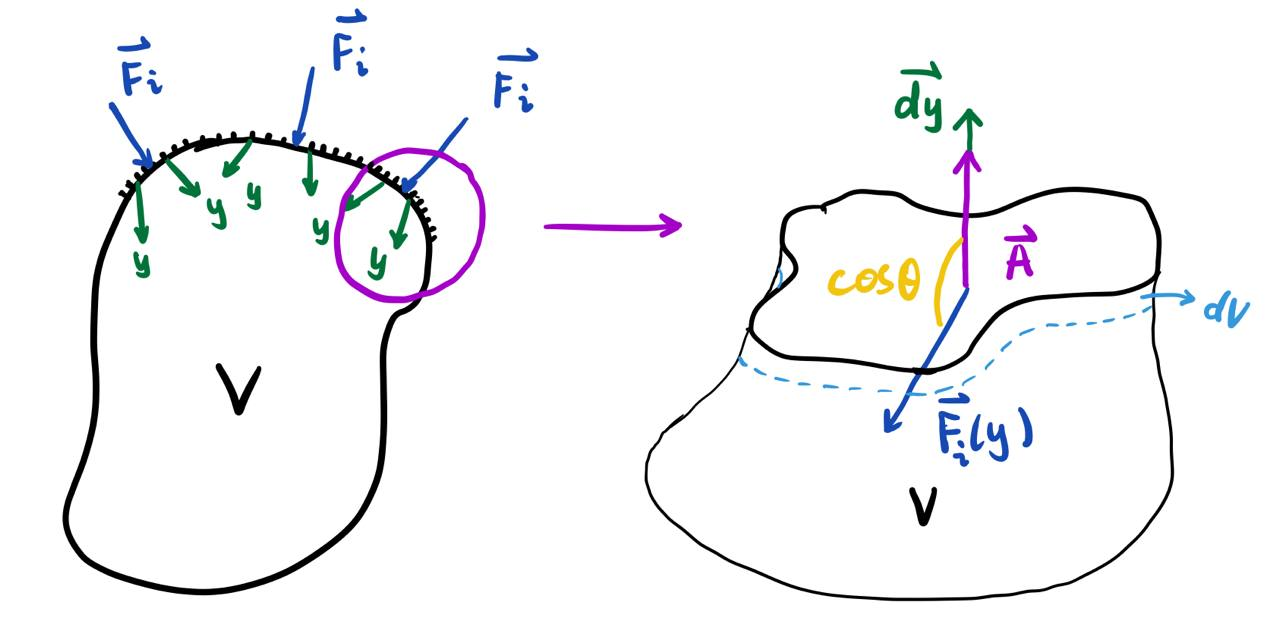 F⃗ᵢ
F⃗ᵢ
F⃗ᵢ
y
y
y
y
y
V
d⃗y
A⃗
cosθ
dV
F⃗ᵢ(y)
V